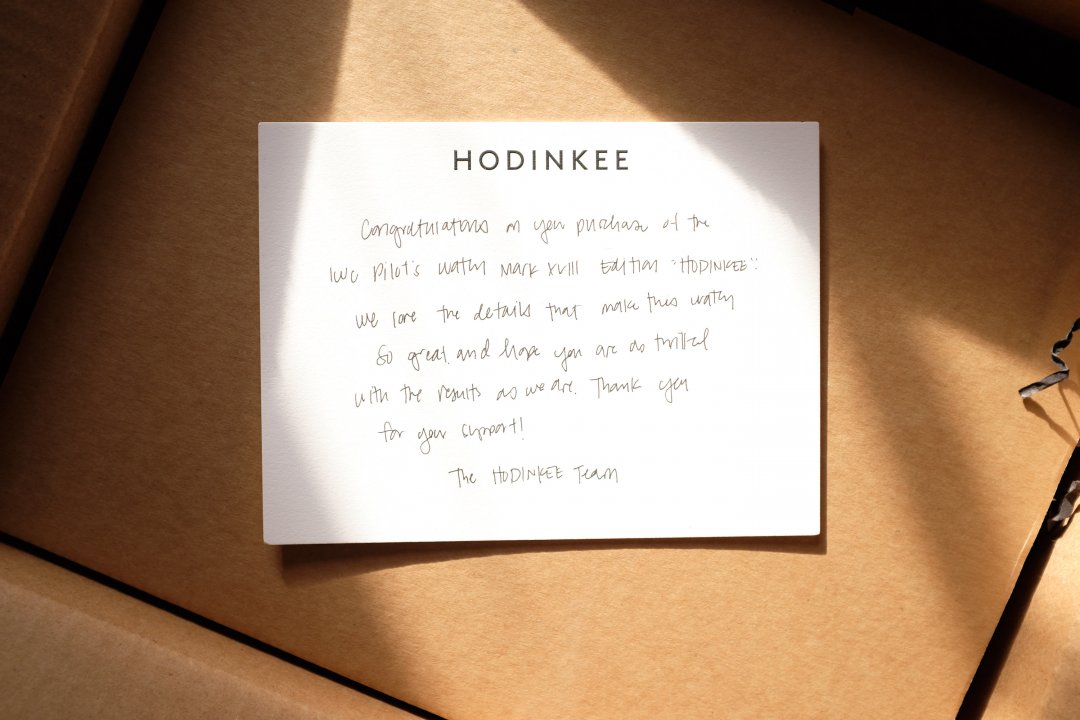 HODINKEE
Congratulations on your purchase of the
IWC Pilot's Watch Mark XVIII Edition "HODINKEE".
We love the details that make this watch
so great and hope you are as thrilled
with the results as we are. Thank you
for your support!
The HODINKEE Team